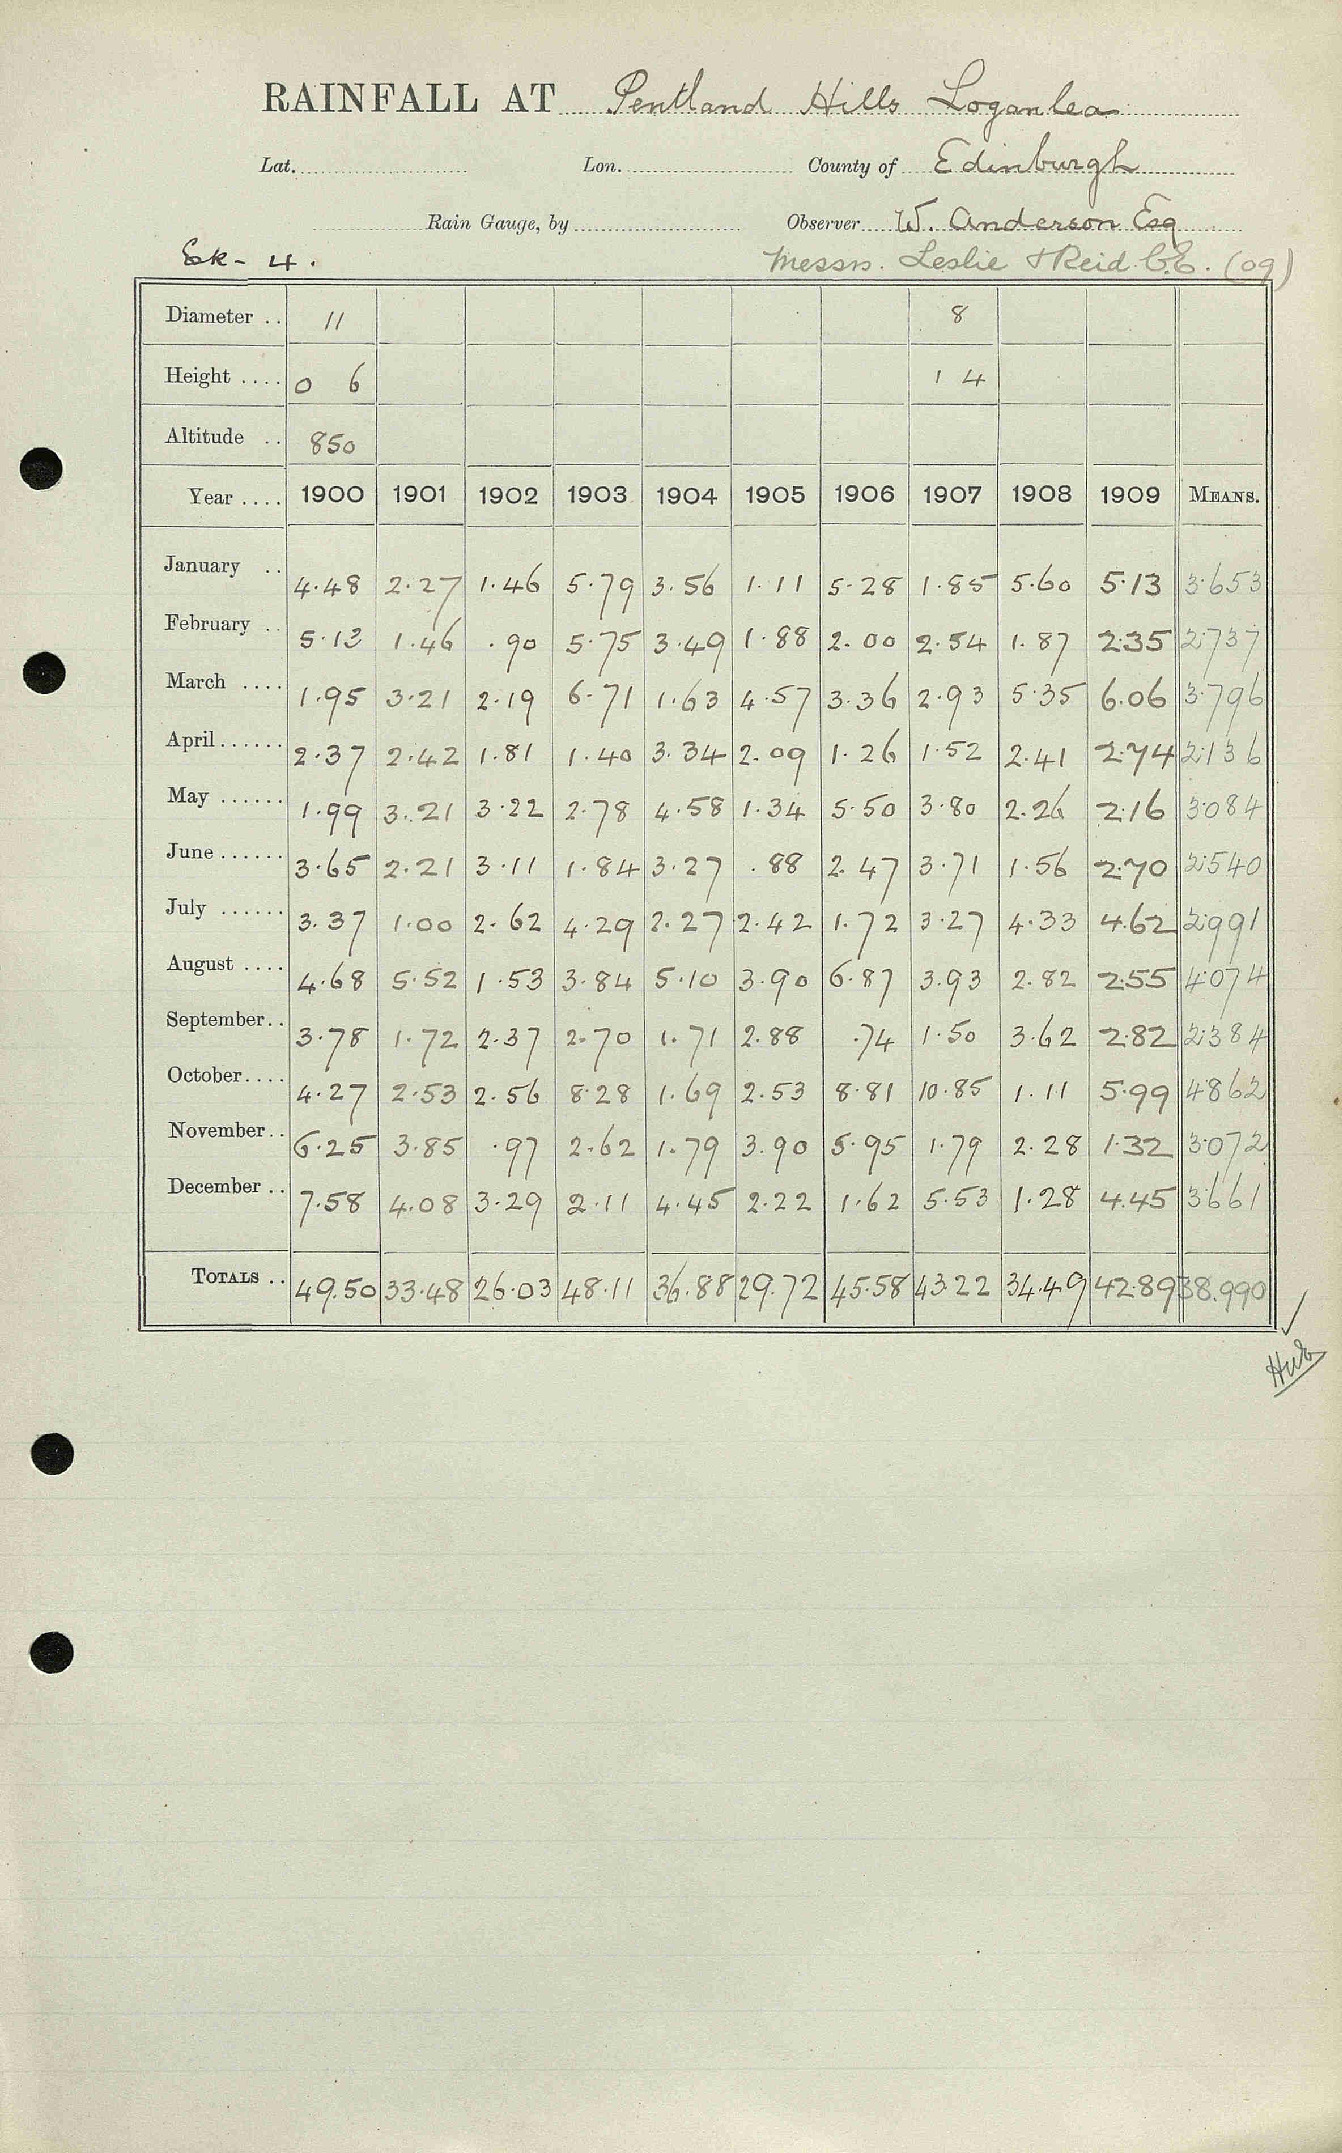 RAINFALL AT Pentland Hills Loganlea
Lat. Lon. County of Edinburgh
Rain Gauge, by Observer W. Anderson Esq
Messrs. Leslie & Reid C.E. (09)
Diameter .. 11 8
Height .... 0 6 1 4
Altitude .. 850
Year .... 1900 1901 1902 1903 1904 1905 1906 1907 1908 1909 MEANS.
January .. 4.48 2.27 1.46 5.79 3.56 1.11 5.28 1.85 5.60 5.13 3.653
February .. 5.13 1.46 .90 5.75 3.49 1.88 2.00 2.54 1.87 2.35 2.737
March .... 1.95 3.21 2.19 6.71 1.63 4.57 3.36 2.93 5.35 6.06 3.796
April ...... 2.37 2.42 1.81 1.40 3.34 2.09 1.26 1.52 2.41 2.74 2.136
May ...... 1.99 3.21 3.22 2.78 4.58 1.34 5.50 3.80 2.26 2.16 3.084
June ...... 3.65 2.21 3.11 1.84 3.27 .88 2.47 3.71 1.56 2.70 2.540
July ...... 3.37 1.00 2.62 4.29 2.27 2.42 1.72 3.27 4.33 4.62 2.991
August .... 4.68 5.52 1.53 3.84 5.10 3.90 6.87 3.93 2.82 2.55 4.074
September .. 3.78 1.72 2.37 2.70 1.71 2.88 .74 1.50 3.62 2.82 2.384
October .... 4.27 2.53 2.56 8.28 1.69 2.53 8.81 10.85 1.11 5.99 4.862
November .. 6.25 3.85 .97 2.62 1.79 3.90 5.95 1.79 2.28 1.32 3.072
December .. 7.58 4.08 3.29 2.11 4.45 2.22 1.62 5.53 1.28 4.45 3.661
TOTALS .. 49.50 33.48 26.03 48.11 36.88 29.72 45.58 43.22 34.49 42.89 38.990